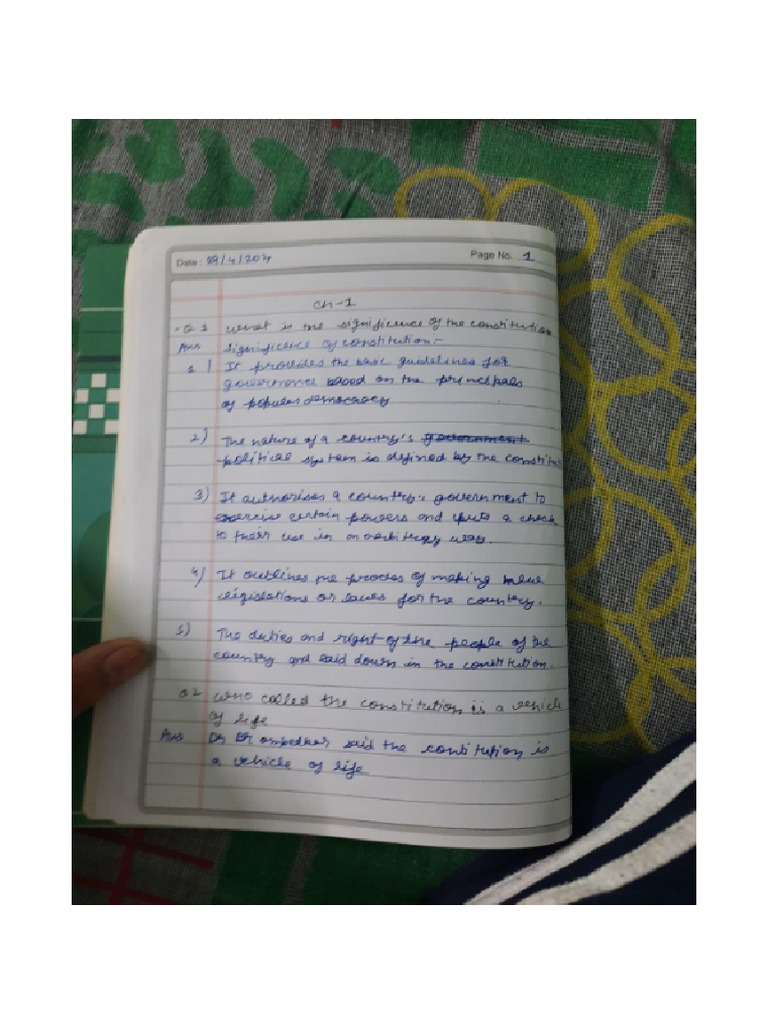 Date : 29/4/2024
Page No. 1
Ch-1
Q 1 What is the significence of the constitution
Ans Significence of constitution:-
1) It provides the basic guidelines for
governance based on the principals
of popular democracy
2) The nature of a country's government
political system is defined by the constitu
3) It authorises a country's government to
exercise certain powers and puts a check
to their use in an arbitrary way.
4) It outlines the process of making new
legislations or laws for the country.
5) The duties and right of the people of the
country and laid down in the constitution.
Q 2 who called the constitution is a vehicle
of life
Ans Dr Br ambedkar said the contitution is
a vehicle of life